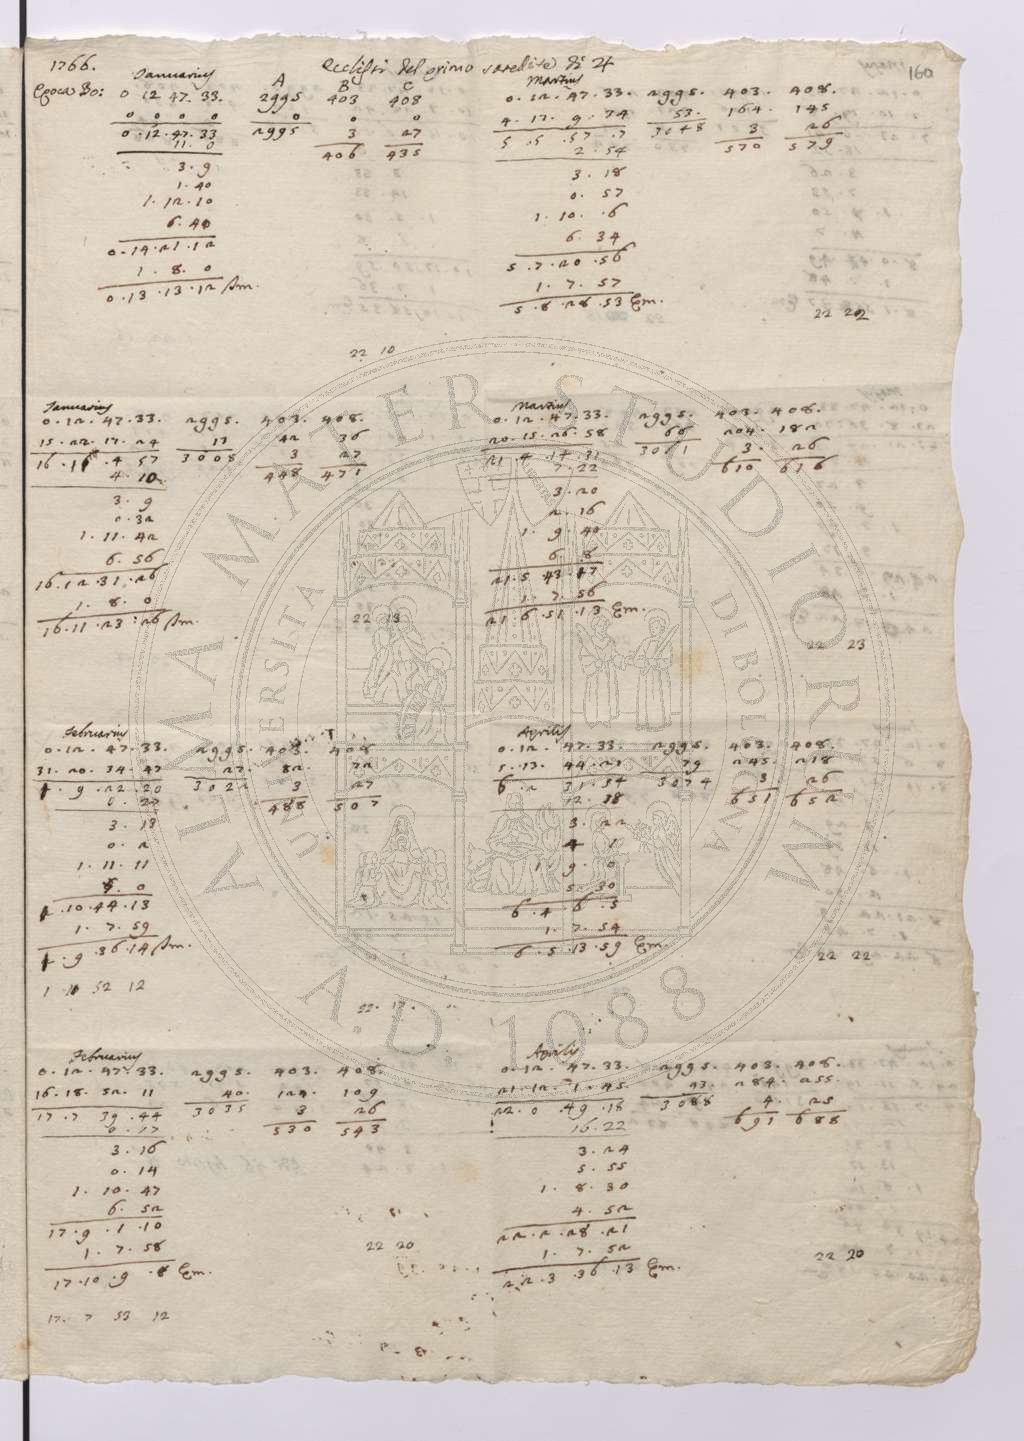 1766.
Ecclissi del primo satellite di ♃
160
Januarius
A B C
Epoca
0 12 47. 33. 2995 403 408
0 0 0 0 0 0 0
0. 12. 47. 33 2995 3 27
11. 0 406 435
3. 9
1. 40
1. 12. 10
6. 40
0. 14. 21. 12
1. 8. 0
0. 13. 13. 12 Im.
22 10
Martius
0. 12. 47. 33. 2995. 403. 408.
4. 17. 9. 34 53. 164. 145
5. 5. 57. 7 3048 3 26
2. 54 570 579
3. 18
0. 57
1. 10. 6
6. 34
5. 7. 20. 56
1. 7. 57
5. 8. 28. 53 Em.
22 22
Januarius
0. 12. 47. 33. 2995. 403. 408.
15. 22. 17. 24 13 42 36
16. 11. 4 57 3008 3 27
4. 10 448 471
3. 9
0. 32
1. 11. 42
6. 56
16. 12. 31. 26
1. 8. 0
16. 11. 23. 26 Im.
22 13
Martius
0. 12. 47. 33. 2995. 403. 408.
20. 15. 26. 58 66 204. 182
21. 4. 14. 31 3061 3. 26
7. 22 610 616
3. 20
2. 16
1. 9. 40
6. 8
21. 5. 43. 17
1. 7. 56
21. 6. 51. 13 Em.
22 23
Februarius
0. 12. 47. 33. 2995. 403. 408
31. 20. 34. 47 27. 82. 72
1. 9. 22. 20 3022 3 27
0. 27 488 507
3. 13
0. 2
1. 11. 11
7. 0
1. 10. 44. 13
1. 7. 59
1. 9. 36. 14 Im.
1 10 52 12
22. 17.
Aprilis
0. 12. 47. 33. 2995. 403. 408.
5. 13. 44. 21 79 245. 218
6. 2 31. 54 3074 3. 26
12. 18 651 652
3. 22
4 1
1. 9. 0
5. 30
6. 4. 6. 5
1. 7. 54
6. 5. 13. 59 Em.
22 22
Februarius
0. 12. 47. 33. 2995. 403. 408.
16. 18. 52. 11 40. 124. 109
17. 7 39. 44 3035 3 26
0. 17 530 543
3. 16
0. 14
1. 10. 47
6. 52
17. 9. 1. 10
1. 7. 58
17. 10. 9. 8 Em.
22 20
17. 7 53 12
Aprilis
0. 12. 47. 33. 2995. 403. 408.
21. 12. 1. 45. 93. 284. 255
22. 0. 49. 18 3088 4. 25
16. 22 691 688
3. 24
5. 55
1. 8. 30
4. 52
22. 2. 28. 21
1. 7. 52
22. 3. 36. 13 Em.
22 20
ALMA MATER STUDIORUM
UNIVERSITÀ DI BOLOGNA
A.D. 1088